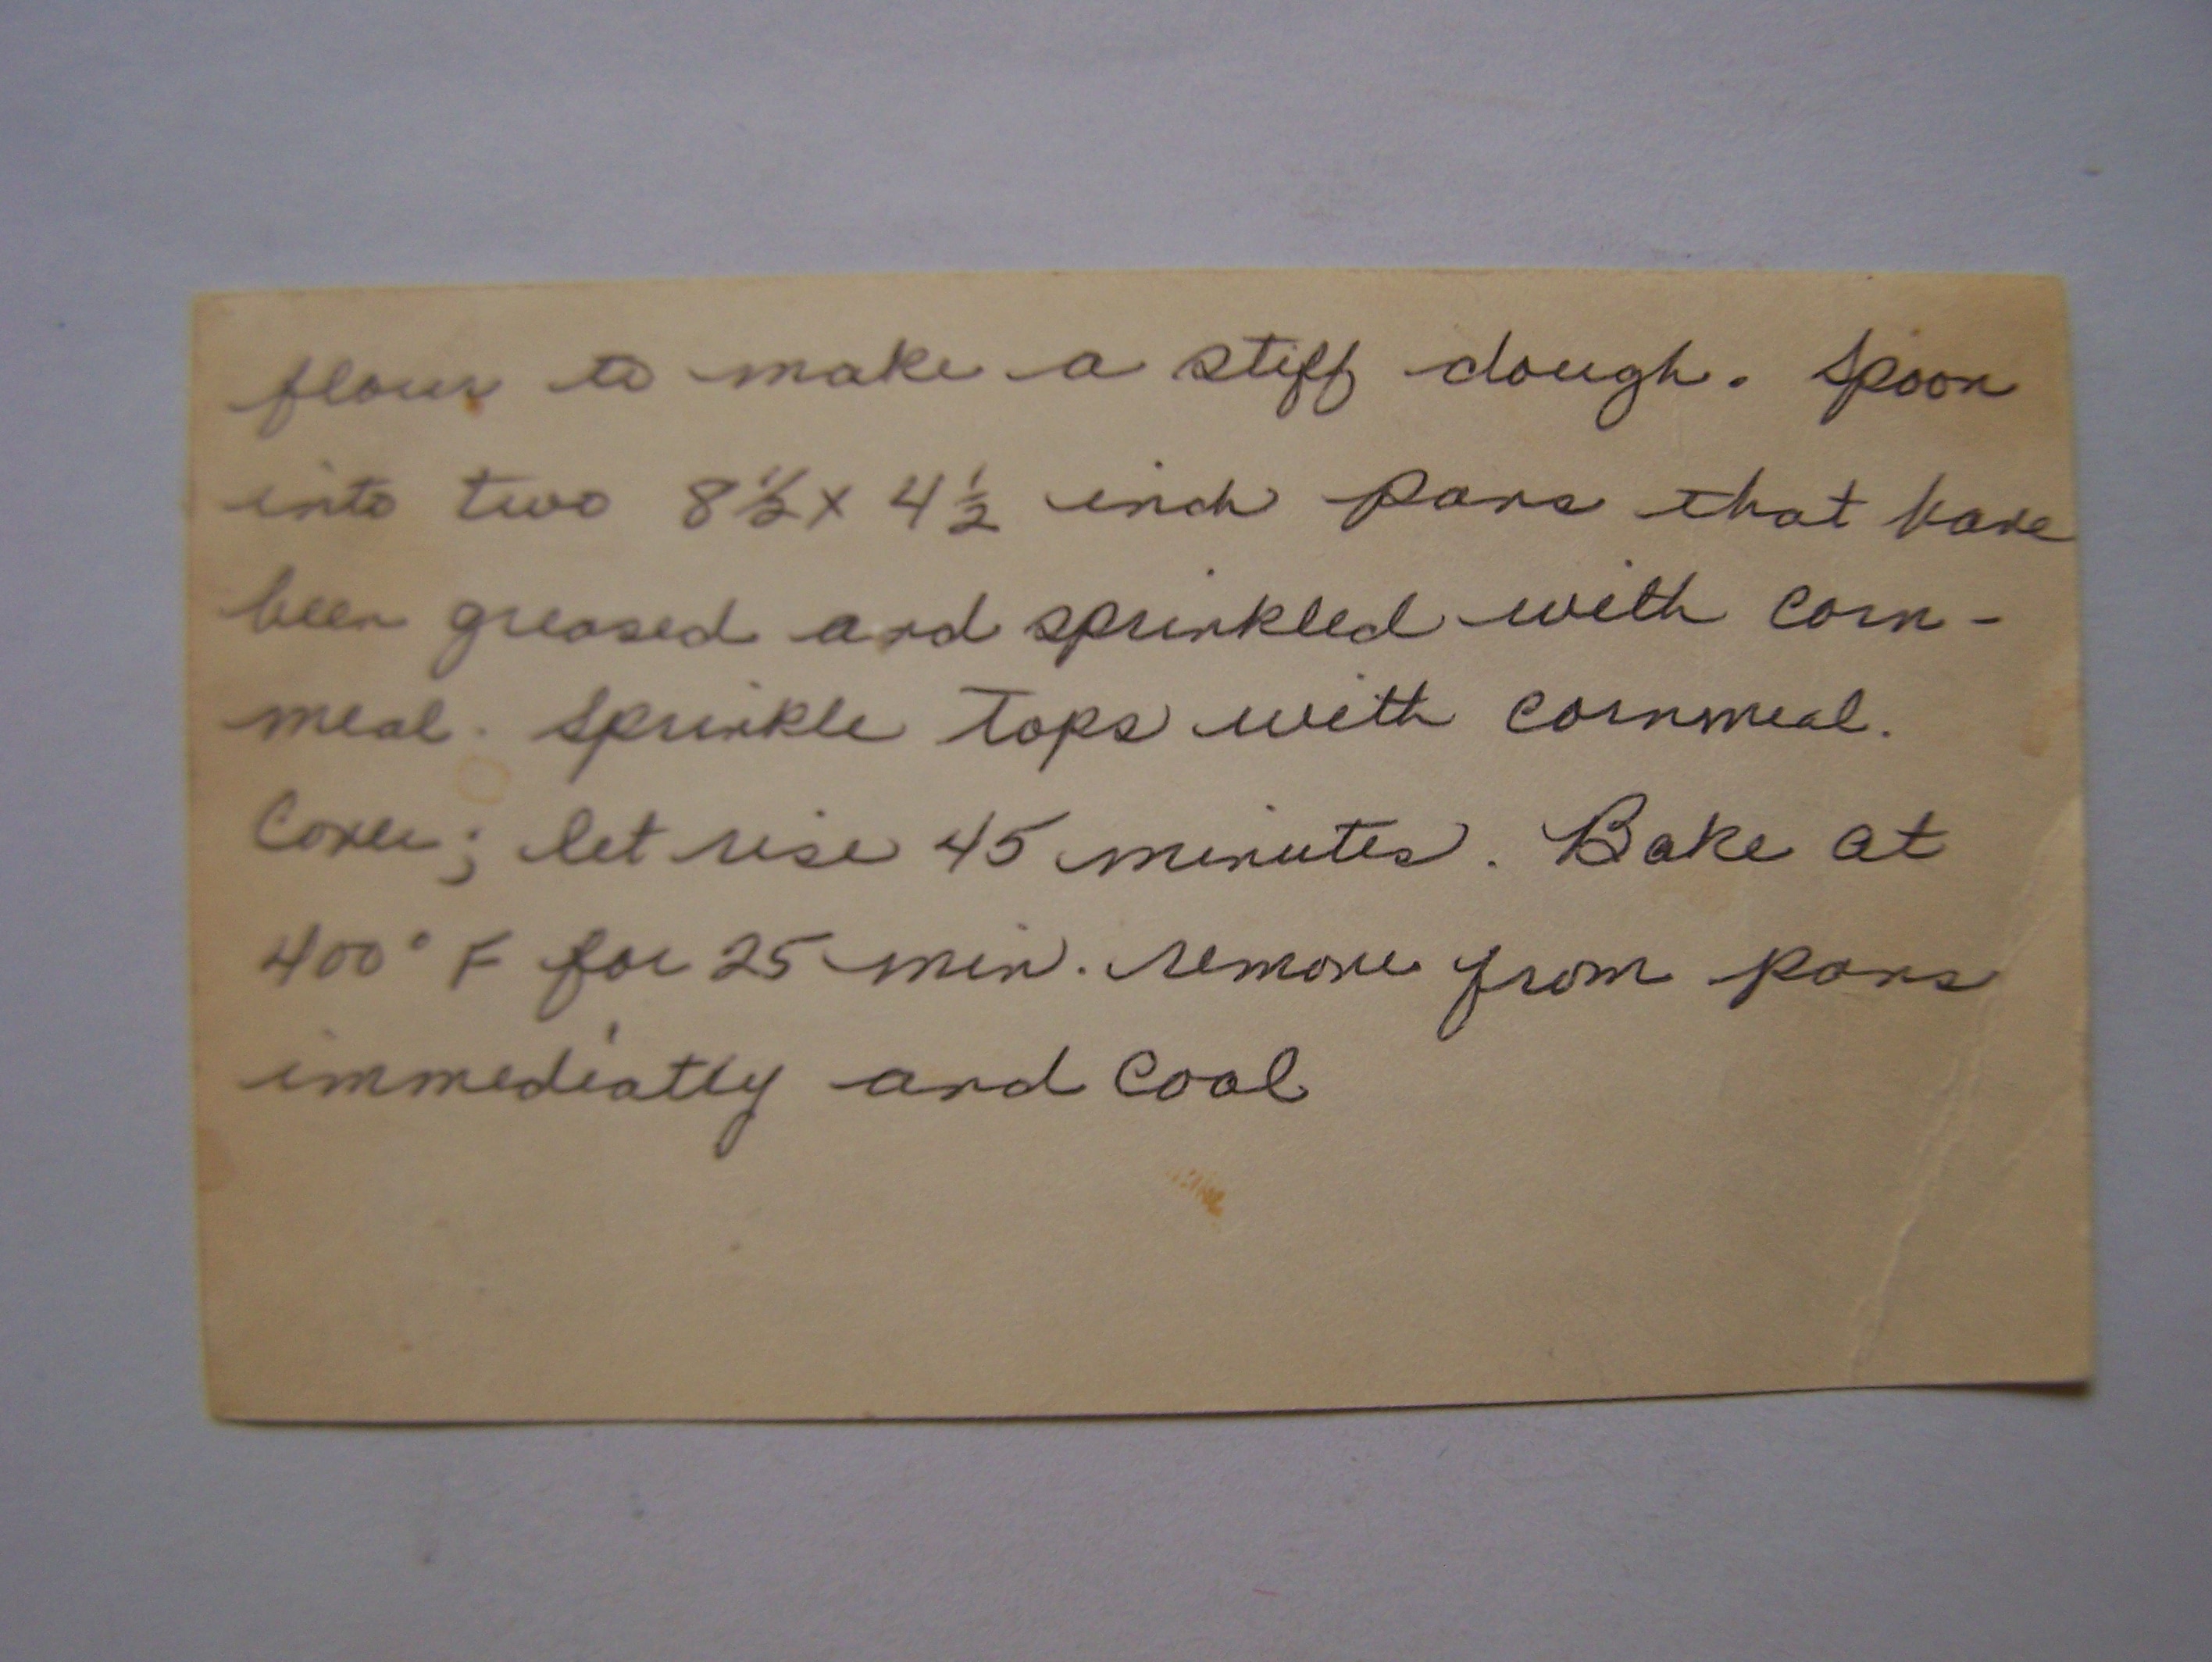 flour to make a stiff dough. Spoon
into two 8½ x 4½ inch pans that have
been greased and sprinkled with corn-
meal. Sprinkle Tops with cornmeal.
Cover; let rise 45 minutes. Bake at
400° F for 25 min. remove from pans
immediatly and cool